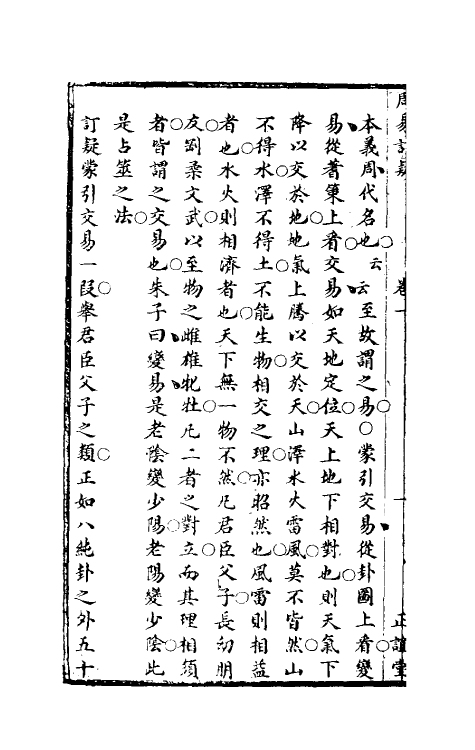 周易訂疑　卷一　一　正誼堂
本義周代名也云云至故謂之易○蒙引交易從卦圖上看變
易從蓍策上看交易如天地定位天上地下相對也則天氣下
降以交於地地氣上騰以交於天山澤水火雷風莫不皆然山
不得水澤不得土不能生物相交之理亦昭然也風雷則相益
者也水火則相濟者也天下無一物不然凡君臣父子長幼朋
友剛柔文武以至物之雌雄牝牡凡二者之對立而其理相須
者皆謂之交易也朱子曰變易是老陰變少陽老陽變少陰此
是占筮之法
訂疑蒙引交易一段舉君臣父子之類正如八純卦之外五十